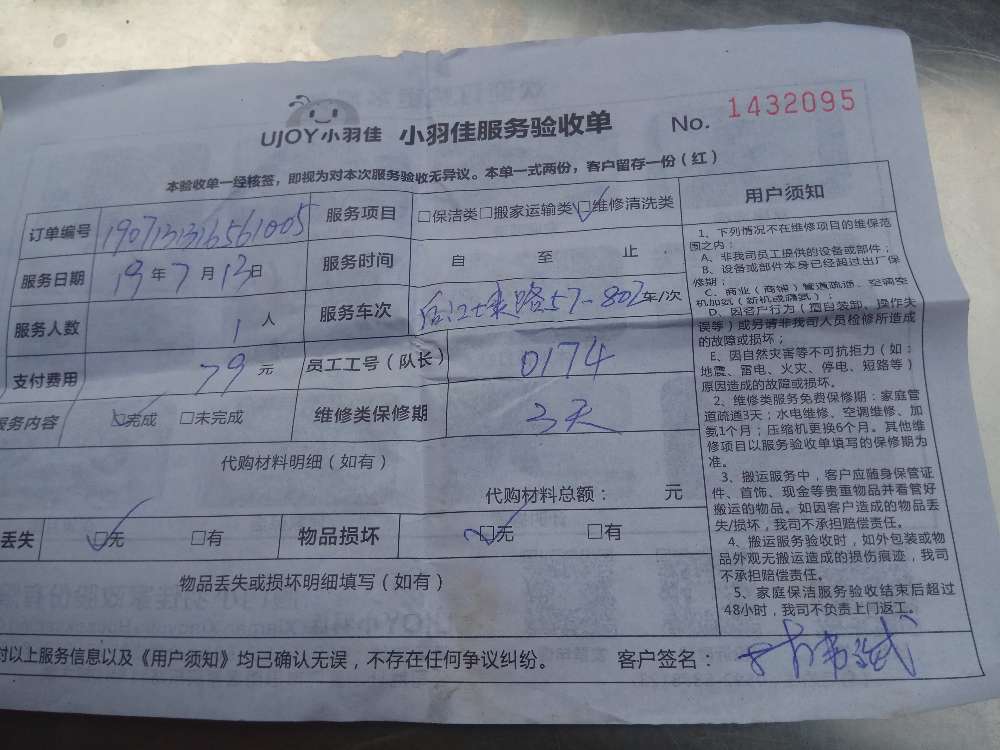 UJOY小羽佳 小羽佳服务验收单 No. 1432095
本验收单一经核签，即视为对本次服务验收无异议。本单一式两份，客户留存一份（红）
订单编号 190713316561005 服务项目 □保洁类□搬家运输类□维修清洗类
服务日期 19年7月13日 服务时间 自 至 止
服务人数 1人 服务车次 57-802 车/次
支付费用 79元 员工工号（队长） 0174
服务内容 □完成 □未完成 维修类保修期 3天
代购材料明细（如有）
代购材料总额： 元
丢失 □无 □有 物品损坏 □无 □有
物品丢失或损坏明细填写（如有）
对以上服务信息以及《用户须知》均已确认无误，不存在任何争议纠纷。 客户签名：
用户须知
1、下列情况不在维修项目的维保范
围之内：
A、非我司员工提供的设备或部件；
B、设备或部件本身已经超过出厂保
修期；
C、商业（商铺）管道疏通、空调空
机加氨（新机或隔氨）；
D、因客户行为（擅自装卸、操作失
误等）或另请非我司人员检修所造成
的故障或损坏；
E、因自然灾害等不可抗拒力（如：
地震、雷电、火灾、停电、短路等）
原因造成的故障或损坏。
2、维修类服务免费保修期：家庭管
道疏通3天；水电维修、空调维修、加
氨1个月；压缩机更换6个月。其他维
修项目以服务验收单填写的保修期为
准。
3、搬运服务中，客户应随身保管证
件、首饰、现金等贵重物品并看管好
搬运的物品。如因客户造成的物品丢
失/损坏，我司不承担赔偿责任。
4、搬运服务验收时，如外包装或物
品外观无搬运造成的损伤痕迹，我司
不承担赔偿责任。
5、家庭保洁服务验收结束后超过
48小时，我司不负责上门返工。